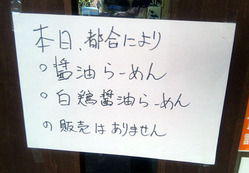 本日、都合により
○醤油らーめん
○白鶏醤油らーめん
の販売はありません